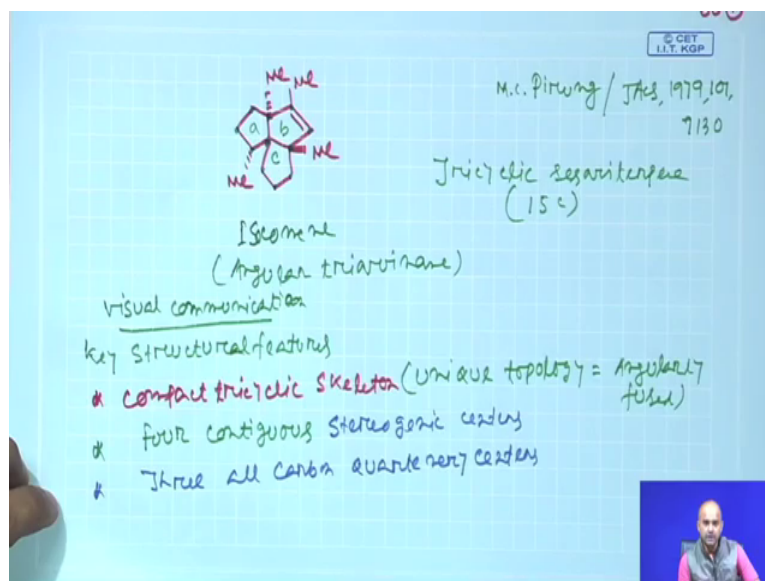 © CET
I.I.T. KGP
Me Me
a b
c Me
Me
M.C. Pirung / JACS, 1979, 101,
9130
Tricyclic sesquiterpene
(15 C)
Isocomene
(Angular triquinane)
Visual communication
Key structural features
* Compact tricyclic skeleton (unique topology = Angularly
fused)
* four contiguous stereogenic centers
* Three all carbon quarternery centers